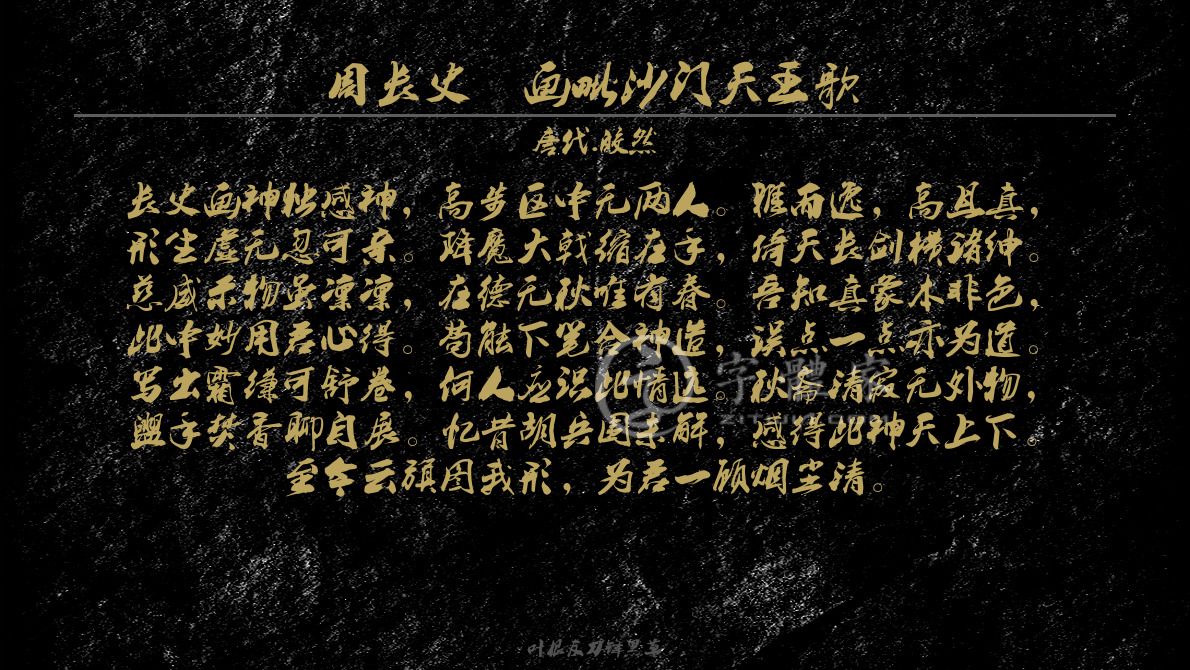 周长史　画毗沙门天王歌
唐代:皎然
长史画神独感神，高步区中无两人。雅而逸，高且真，
形生虚无忽可亲。降魔大戟缩在手，倚天长剑横诸绅。
慈威示物虽凛凛，在德无秋唯有春。吾知真象本非色，
此中妙用君心得。苟能下笔合神造，误点一点亦为道。
写出霜缣可舒卷，何人应识此情远。秋斋清寂无外物，
盥手焚香聊自展。忆昔胡兵围未解，感得此神天上下。
至今云旗图我形，为君一顾烟尘清。
字體家
叶根友刀锋黑草